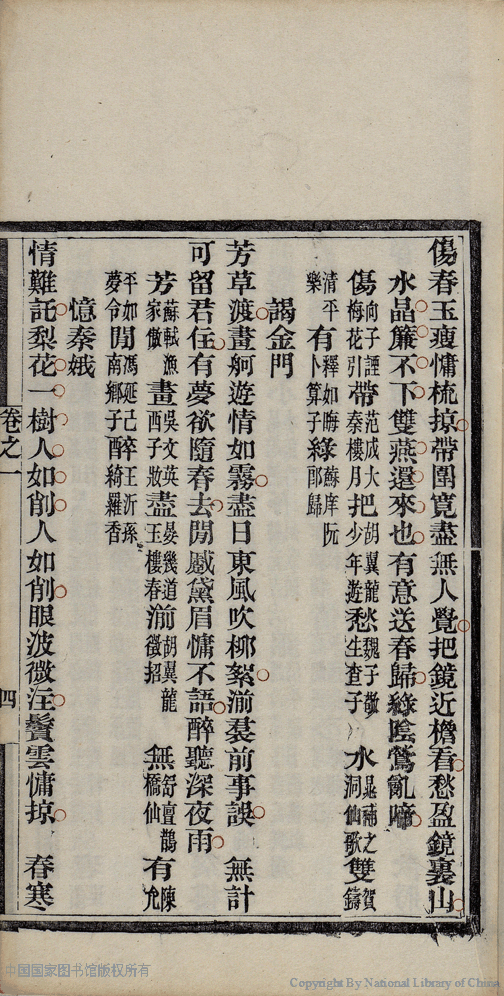 傷春玉瘦慵梳掠帶圍寬盡無人覺把鏡近檐看愁盈鏡裏山
水晶簾不下雙燕還來也有意送春歸綠陰鶯亂啼
傷向子諲梅花引帶范成大秦樓月把胡翼龍少年遊愁魏子敬生查子水晁補之洞仙歌雙賀鑄
清平樂有釋如晦卜算子綠蘇庠阮郎歸
謁金門
芳草渡畫舸遊情如霧盡日東風吹柳絮湔裙前事誤 無計
可留君住有夢欲隨春去閒蹙黛眉慵不語醉聽深夜雨
芳蘇軾漁家傲畫吳文英西子妝盡晏幾道玉樓春湔胡翼龍徵招無舒亶鵲橋仙有陳允
平如夢令閒馮延己南鄉子醉王沂孫綺羅香
憶秦娥
情難託梨花一樹人如削人如削眼波微注鬢雲慵掠 春寒
卷之一
四
中国国家图书馆版权所有
Copyright By National Library of China